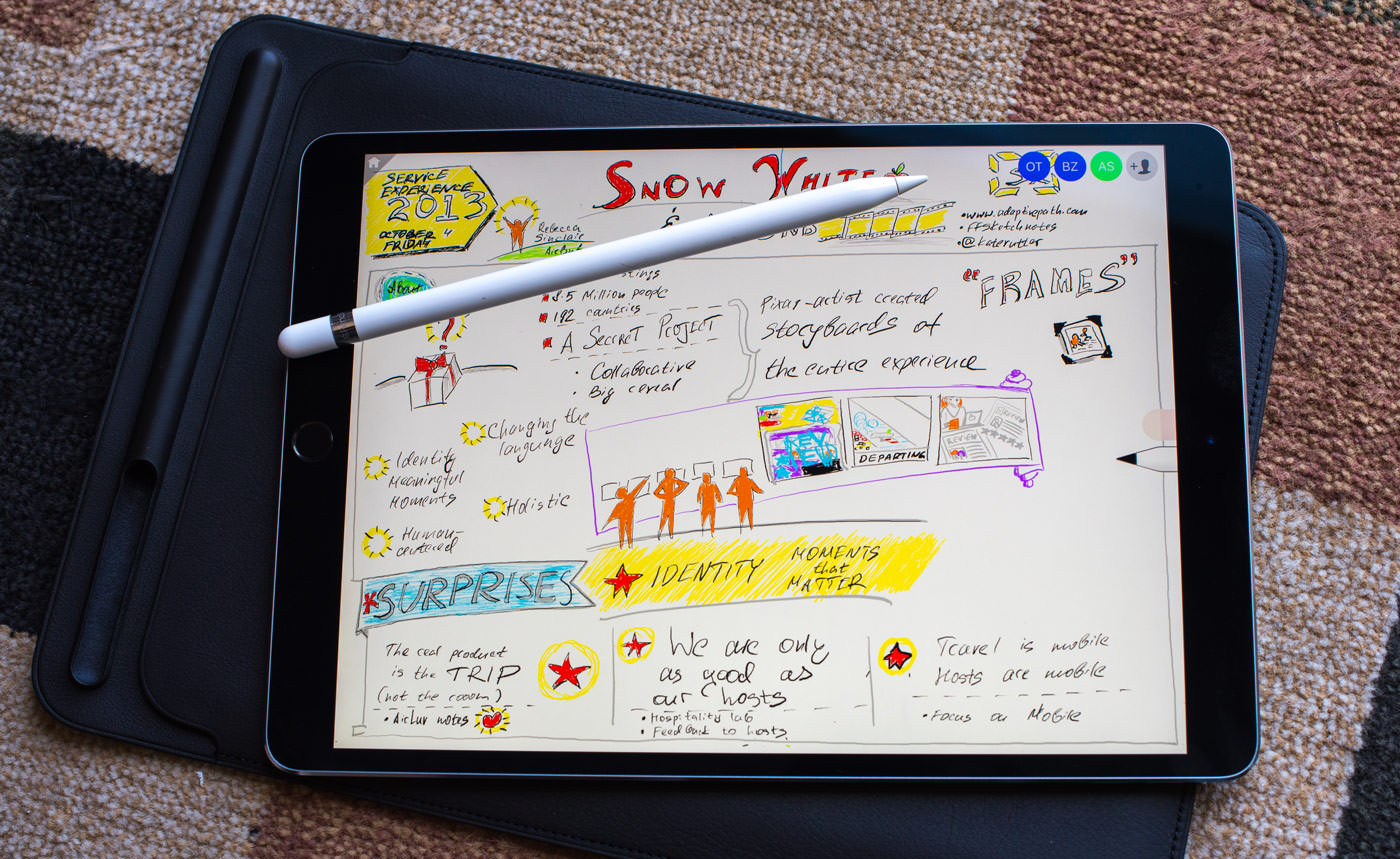 SERVICE
EXPERIENCE
2013
OCTOBER 4
FRIDAY
Rebecca
Sinclair
SNOW WHITE
&
OT
BZ
AS
•www.adaptivepath.com
•ffsketchnotes
•@katerutter
About
?
8.5 Million people
192 countries
A SECRET PROJECT
• Collaborative
• Big cereal
Pixar-artist created
storyboards of
the entire experience
"FRAMES"
Changing the
language
Identify
Meaningful
Moments
Holistic
Human-
centered
KEY
DEPARTING
REVIEW
SURPRISES
IDENTITY
MOMENTS
that
MATTER
The real product
is the TRIP
(not the room)
• AirLuv notes
We are only
as good as
our hosts
• Hospitality lab
• Feedback to hosts
Travel is mobile
Hosts are mobile
• Focus on Mobile